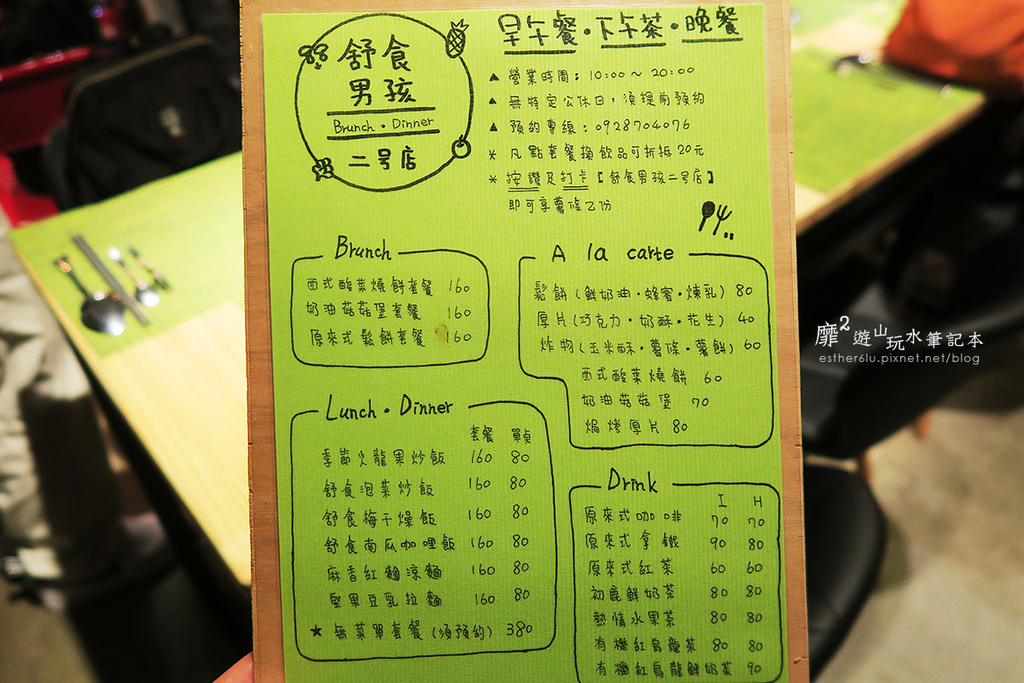 舒食
男孩
Brunch · Dinner
二号店
早午餐·下午茶·晚餐
▲ 營業時間：10:00~20:00
▲ 無特定公休日，須提前預約
▲ 預約專線：0928704076
* 凡點套餐換飲品可折抵20元
* 按讚及打卡【舒食男孩二號店】
即可享薯條乙份
Brunch
西式酸菜燒餅套餐 160
奶油菇菇堡套餐 160
原來式鬆餅套餐 160
A la carte
鬆餅(鮮奶油·蜂蜜·煉乳) 80
厚片(巧克力·奶酥·花生) 40
炸物(玉米酥·薯條·薯餅) 60
西式酸菜燒餅 60
奶油菇菇堡 70
焗烤厚片 80
Lunch · Dinner
套餐 單點
季節火龍果炒飯 160 80
舒食泡菜炒飯 160 80
舒食梅干燥飯 160 80
舒食南瓜咖哩飯 160 80
麻香紅麵涼麵 160 80
堅果豆乳拉麵 160 80
★ 無菜單套餐(須預約) 380
Drink
I H
原來式咖啡 70 70
原來式拿鐵 90 80
原來式紅茶 60 60
初鹿鮮奶茶 80 80
熱情水果茶 80 80
有機紅烏龍茶 80 80
有機紅烏龍鮮奶茶 90
靡²遊山玩水筆記本
esther61u.pixnet.net/blog